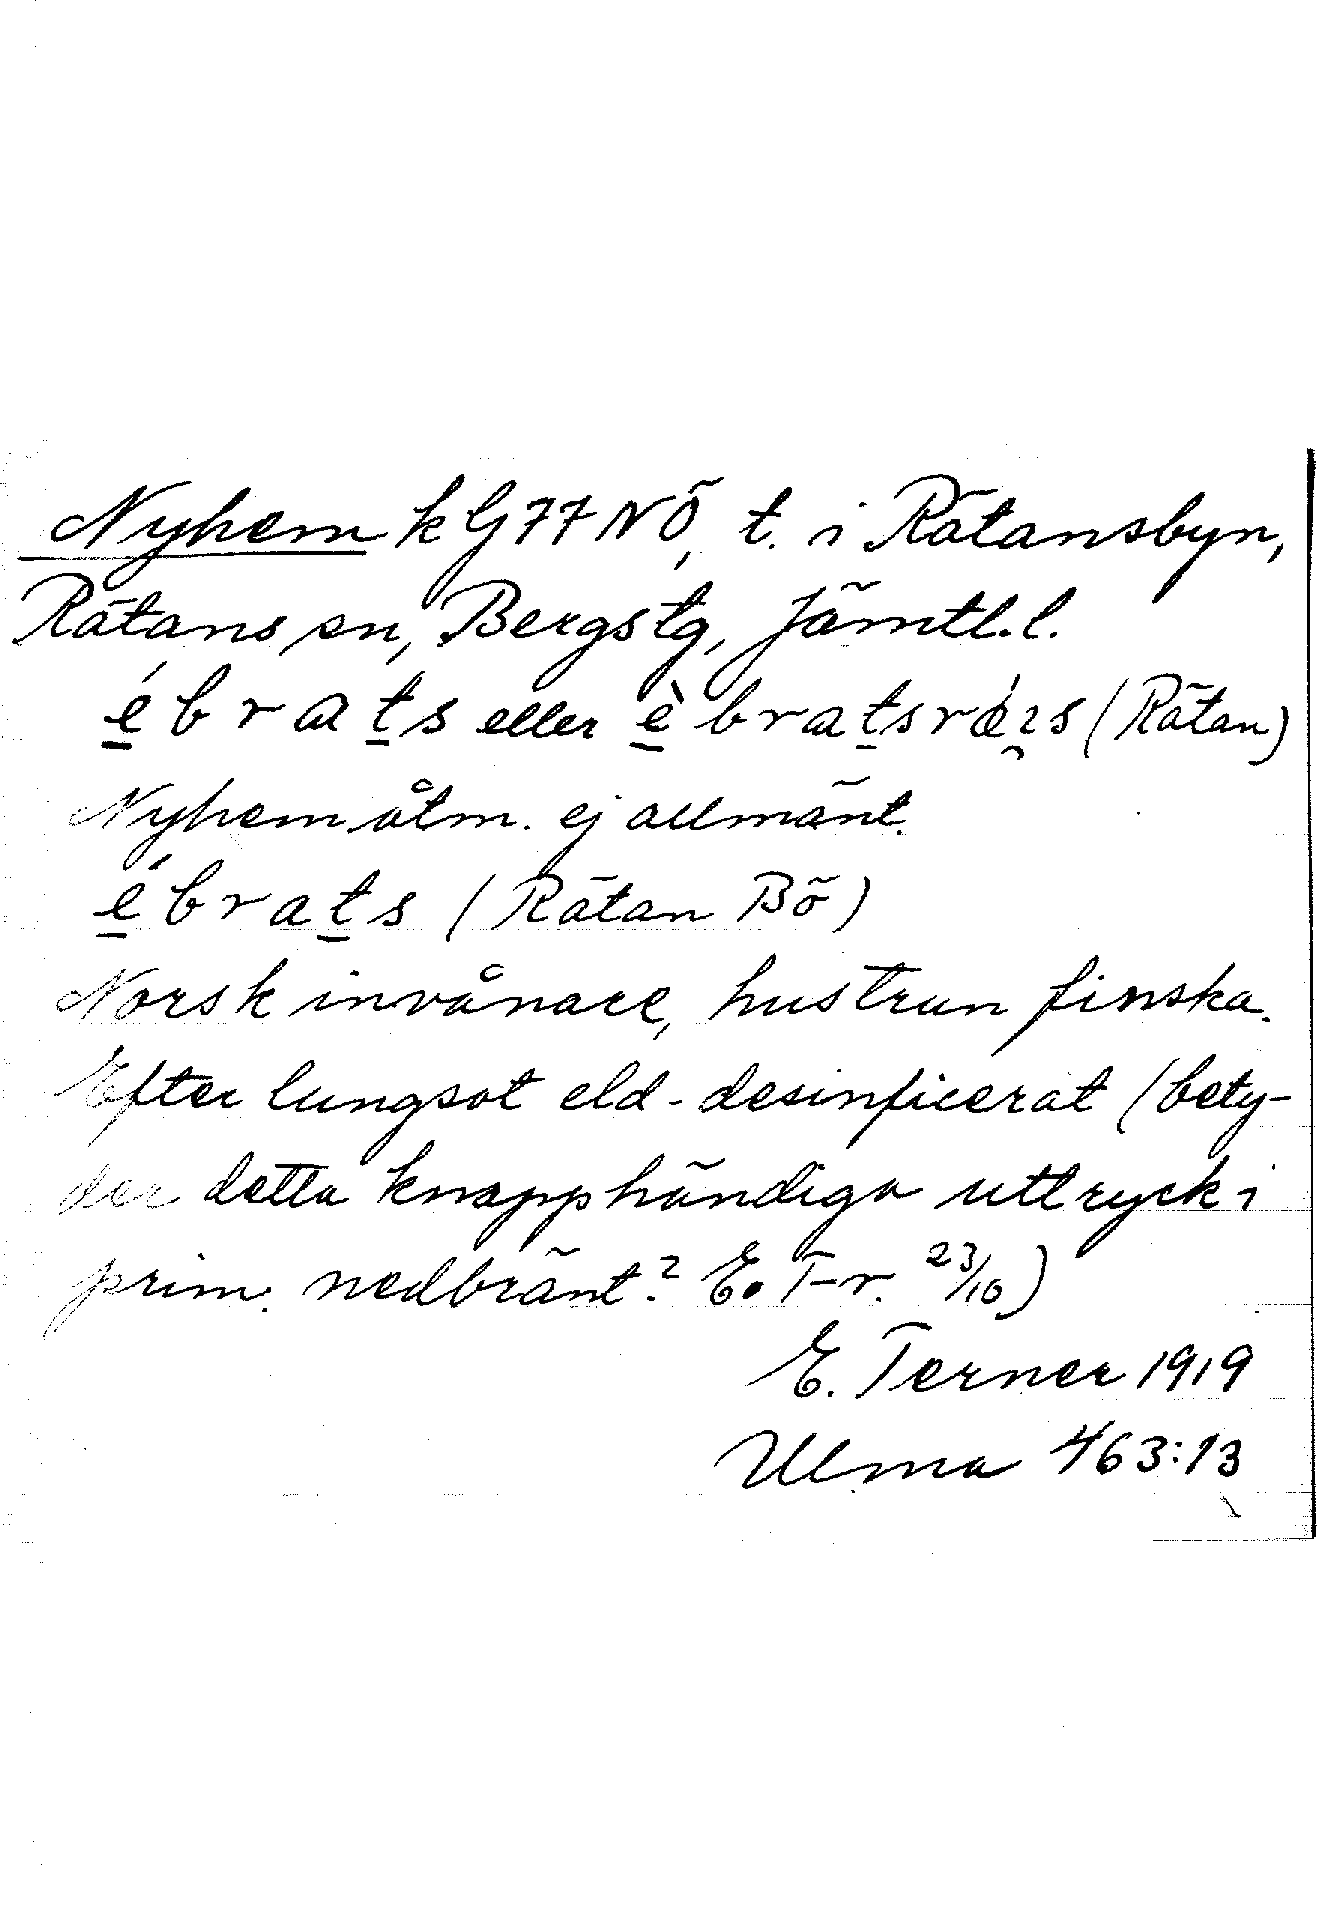 Nyhem k G 77 NÖ, t. i Rätansbyn,
Rätans sn, Bergs tg, Jämtl. l.
é̱brat̠s eller è̱brat̠srǿ̱ɿs (Rätan)
Nyhem åtm. ej allmänt.
é̱brat̠s (Rätan Bö)
Norsk invånare, hustrun finska.
Efter lungsot eld-desinficerat (bety-
der detta knapphändiga uttryck i
prim. nedbränt? E. T-r. 23/10)
E. Terner 1919
Ulma 463:13